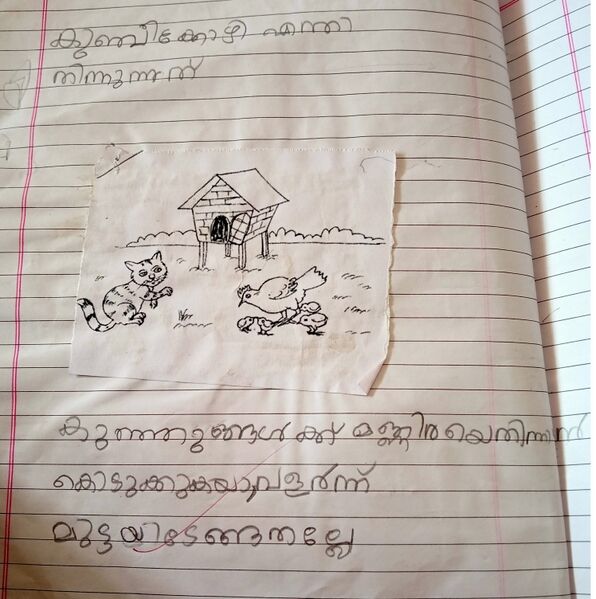 കുഞ്ഞിക്കോഴി എന്തി
തിന്നുന്നത്
കുഞ്ഞുങ്ങൾക്ക് മണ്ണിരയെതിന്നാൻ
കൊടുക്കുകയുംവളർന്ന്
മുട്ടയിടേണ്ടതല്ലേ